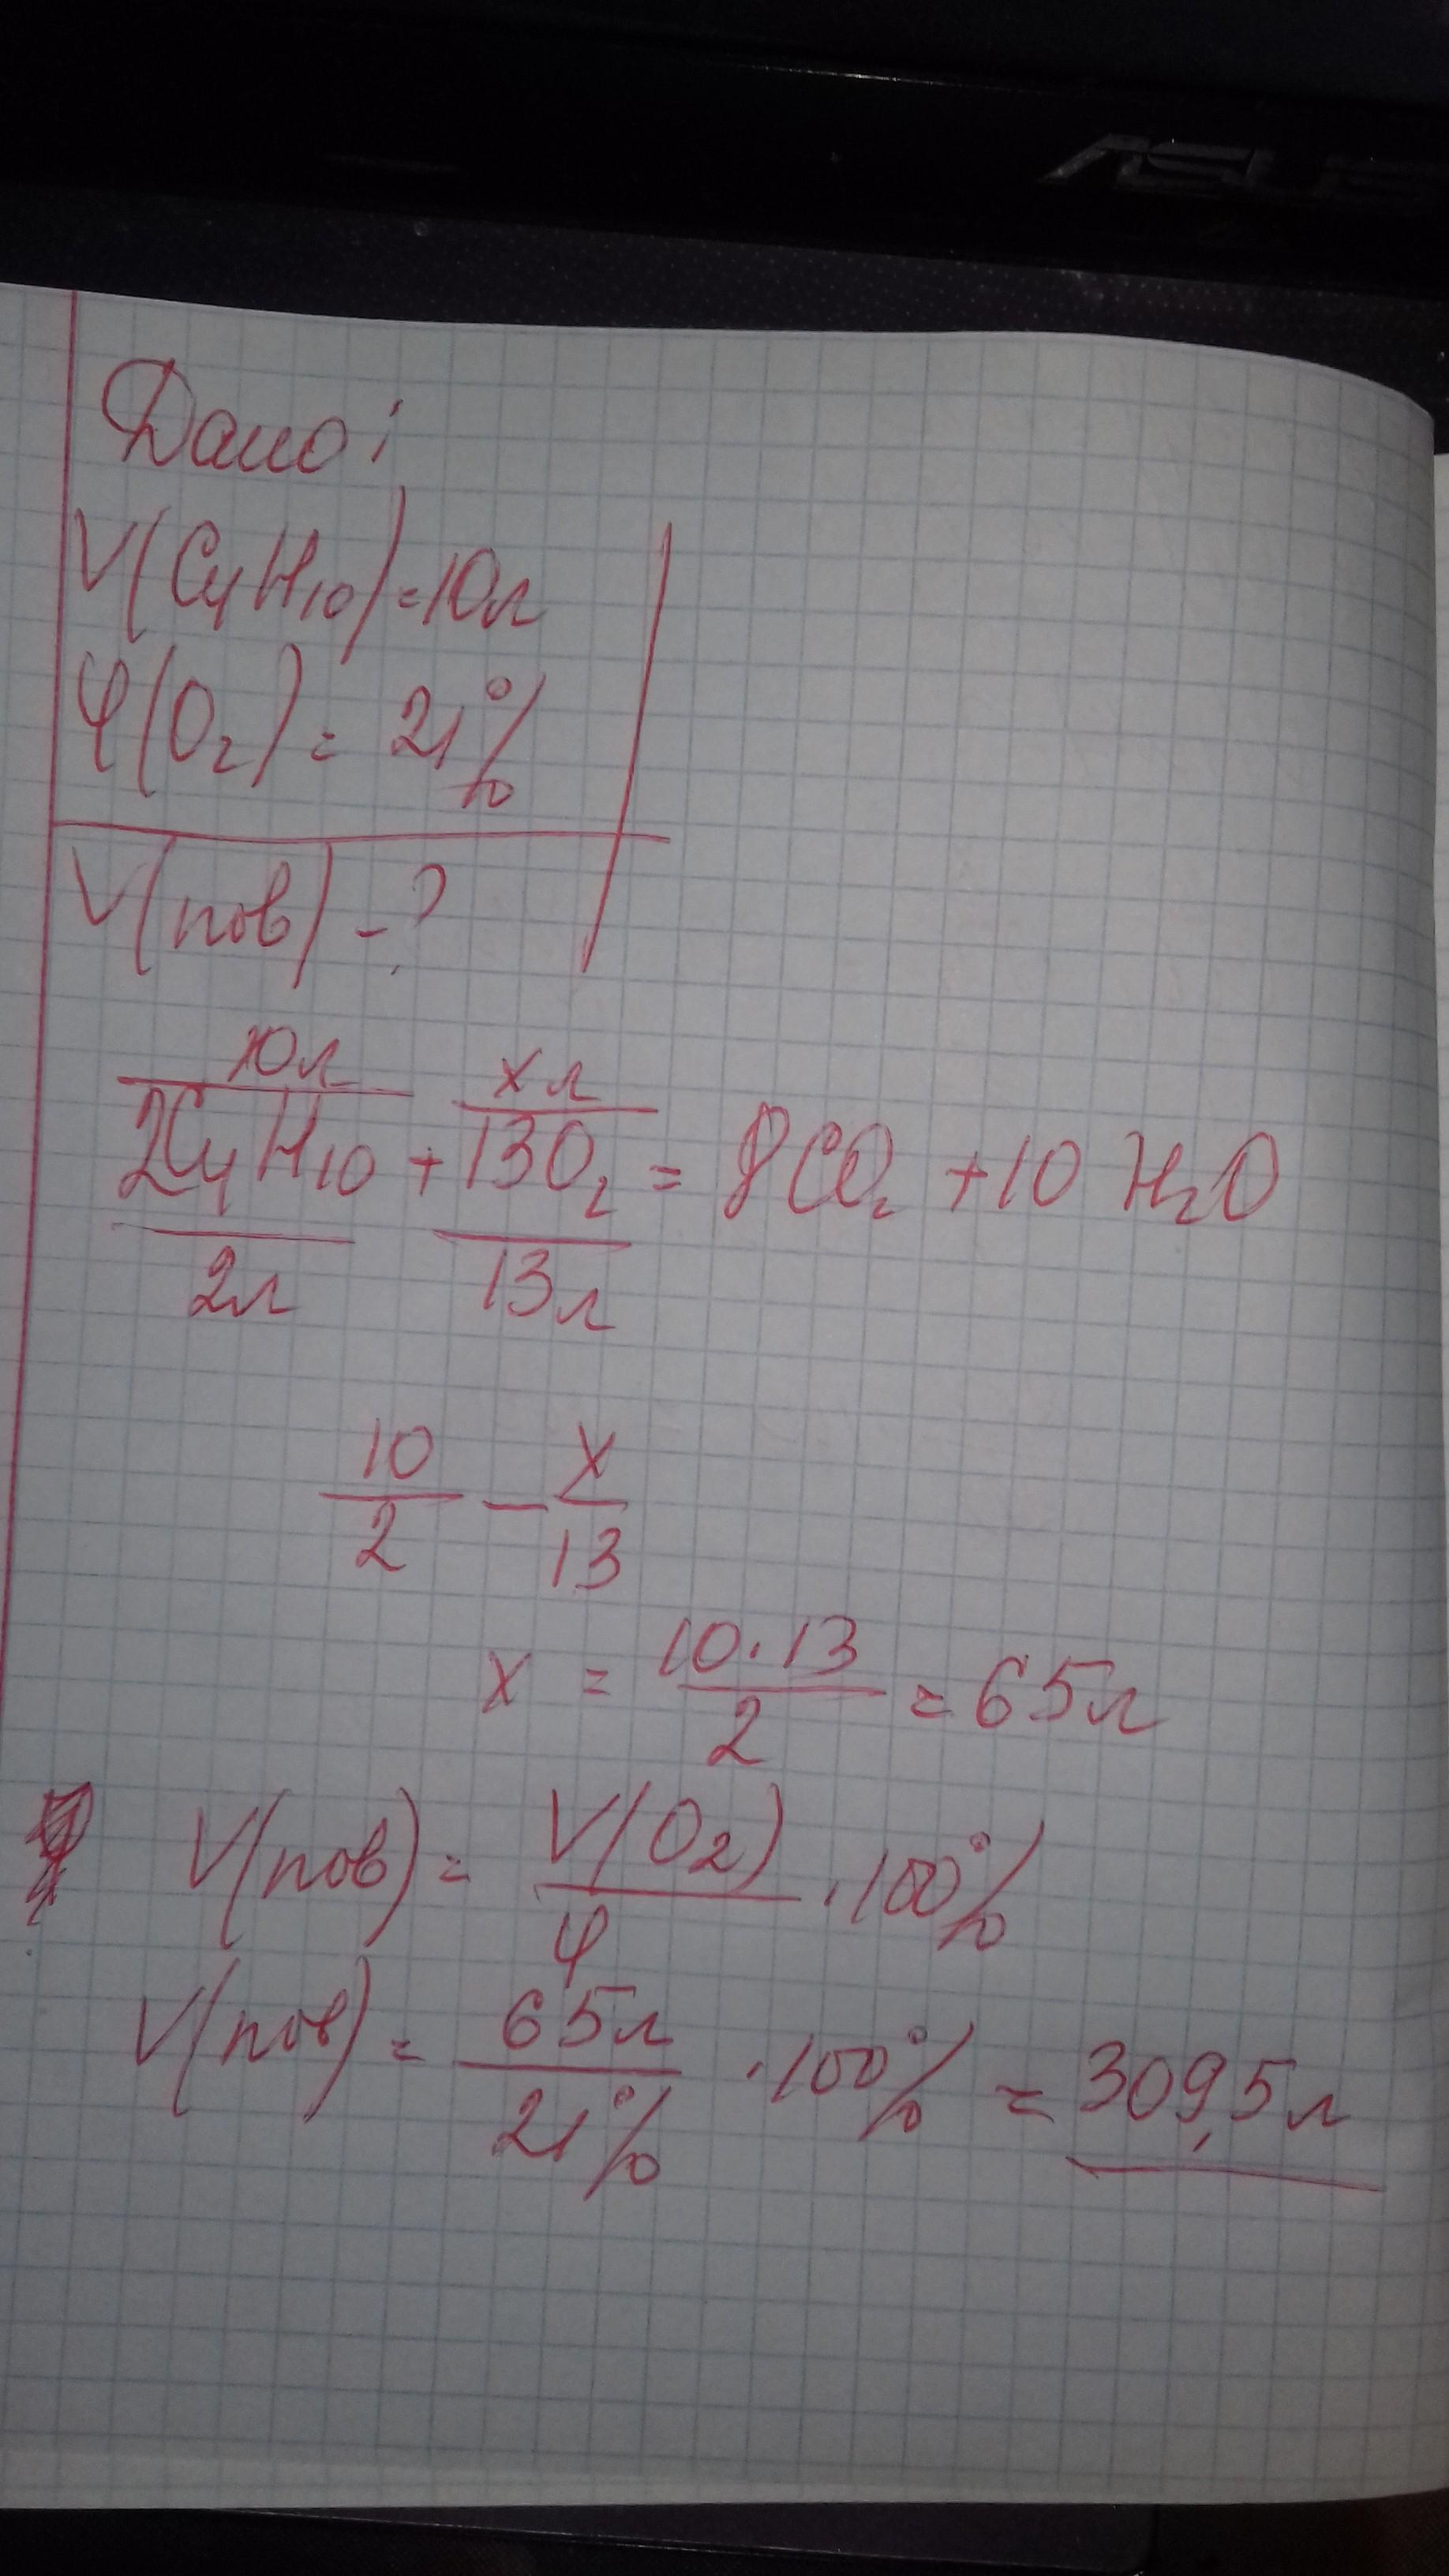 ASUS
Дано:
V(C₄H₁₀)=10л
φ(O₂) = 21%
V(пов) - ?
10л хл
2C₄H₁₀ + 13O₂ = 8CO₂ + 10 H₂O
2л 13л
10/2 – x/13
x = 10·13/2 = 65л
V(пов) = V(O₂)/φ · 100%
V(пов) = 65л/21% · 100% = 309,5л